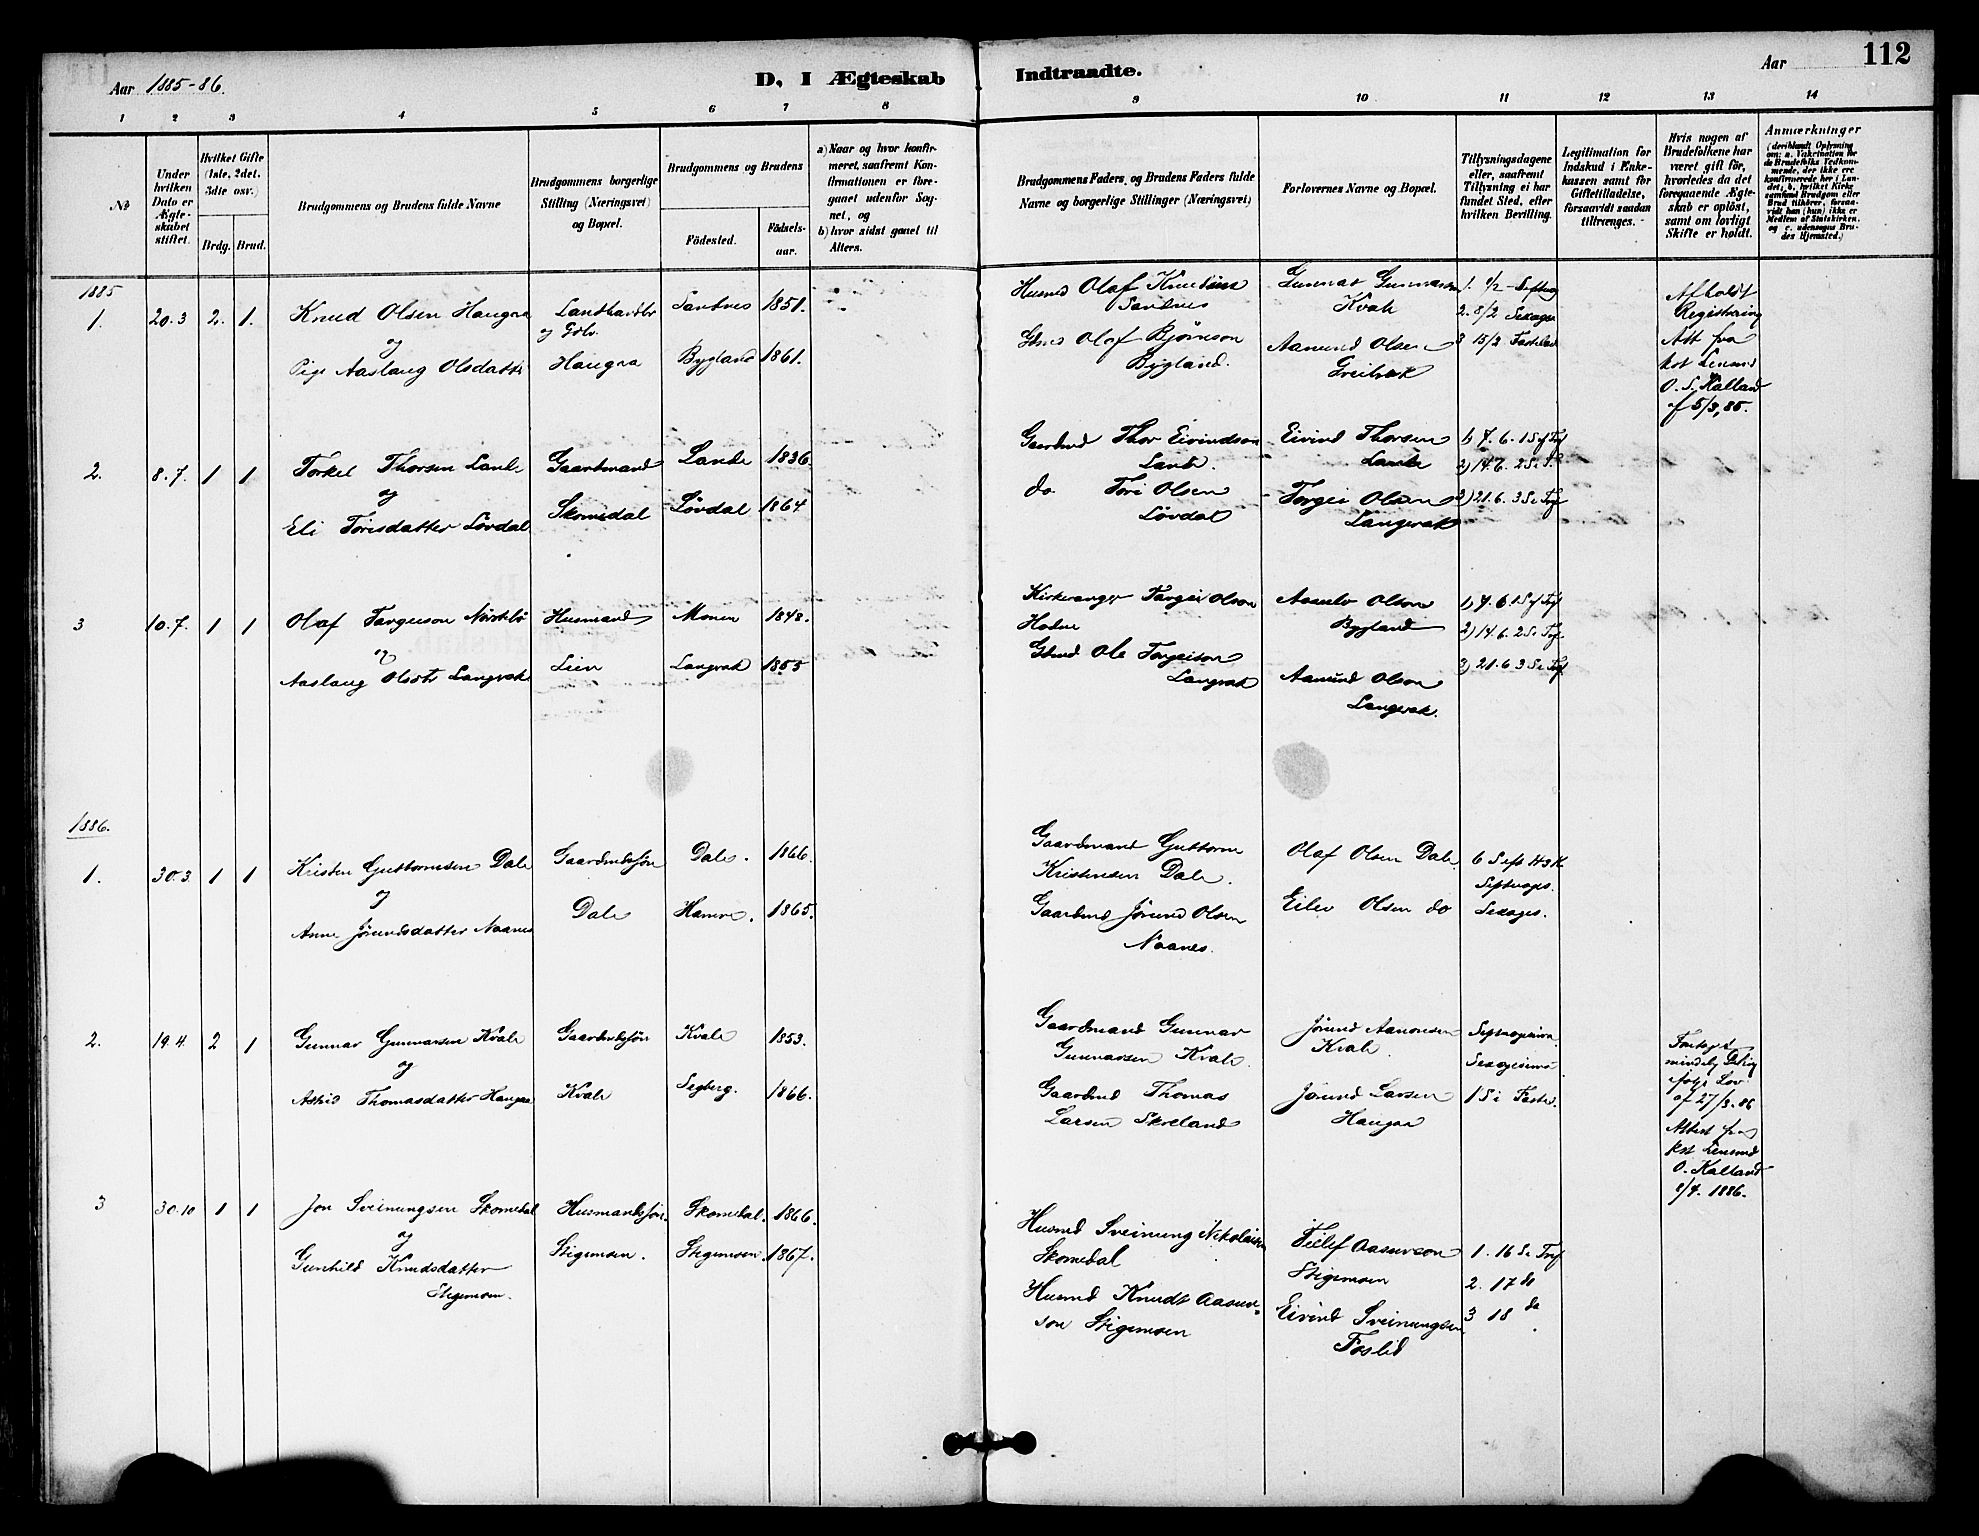 112
Aar 1885-86.
D, I Ægteskab Indtraadte.
Aar
1 2 3 4 5 6 7 8 9 10 11 12 13 14
No
Under hvilken Dato er Ægteskabet stiftet.
Hvilket Gifte (1ste, 2det, 3die osv.)
Brdg. Brud.
Brudgommens og Brudens fulde Navne
Brudgommens borgerlige Stilling (Næringsvei) og Bopæl.
Brudgommens og Brudens
Födested.
Födselsaar.
a) Naar og hvor konfirmeret, saafremt Konfirmationen er foregaaet udenfor Sognet, og
b) hvor sidst gaaet til Alters.
Brudgommens Faders og Brudens Faders fulde Navne og borgerlige Stillinger (Næringsvei)
Forlovernes Navne og Bopæl.
Tillysningsdagene eller, saafremt Tillysning ei har fundet Sted, efter hvilken Bevilling.
Legitimation for Indskud i Enkekassen samt for Giftetilladelse, forsaavidt saadan tiltrænges.
Hvis nogen af Brudefolkene har været gift för, hvorledes da det foregaaende Ægteskab er oplöst, samt om lovligt Skifte er holdt.
Anmærkninger (deriblandt Oplysning om: a. Vakcination for de Brudefolks Vedkommende, der ikke ere konfirmerede her i Landet, b. hvilket Kirkesamfund Brudgom eller Brud tilhörer, forsaavidt han (hun) ikke er Medlem af Statskirken, og c. udensogns Brudes Hjemsted.)
1885
1. 20.3 2. 1. Knud Olsen Haugaa
og
Pige Aaslaug Olsdatter
Landhandler
og Gdbr.
Haugaa
Sandnes 1851.
Bygland 1861.
Husmd Olaf Knudsen
Sandnes
Gbmd Olaf Bjørnson
Bygland.
Gunnar Gunnarson
Kvale
Aamund Olsen
1. 1/2
2. 8/2 Sexages
3 15/2 Fastel
Afholdt
Registrering
Att fra
kst Lensmd
O. S. Kalland
af 5/3, 85.
2. 8.7. 1 1 Torkel Thorsen Lande
og
Eli Torisdatter Løvdal
Gaardmand
Skomedal
Lande 1836.
Løvdal 1864
Gaardmd Thor Eivindson
Lande.
do. Tori Olsen
Løvdal
Eivind Thorsen
Lande
Torgei Olsen
Langevak
1) 7.6. 1 S ef Tref
2) 14.6. 2 S
3) 21.6. 3 S e Tref
3 10.7. 1 1 Olaf Targeison
og
Aaslaug Olsdtr Langvak
Husmand
Lien
Monen 1848.
Langvak 1855
Kirkesanger Targei Olson
Gbmd. Ole Torgeison
Langvak
Aanulv Olson
Bygland
Aamund Olson
Langevak.
1) 7.6. 1 S ef Tref
2) 14.6. 2 S e Tref
3) 21.6 3 S e Tref
1886.
1. 30.3. 1 1 Kristen Guttormsen Dale
og
Anne Jørundsdatter Naanes
Gaardmdssøn
Dale
Dale. 1866.
Hamre. 1865.
Gaardmand Guttorm
Kristensen Dale.
Gaardmd Jørund Olsen
Naanes.
Olaf Olsen Dale
Eilev Olsen do
6 S
Septuages.
Sexages.
2. 19.4. 2 1 Gunnar Gunnarsen Kvale
og
Astrid Thomasdatter Haugaa
Gaardmdssøn
Kvale
Kvale 1853.
Segberg. 1866.
Gaardmand Gunnar
Gunnarsen Kvale.
Gaardmd Thomas
Larsen Skreland
Jørund Aanonsen
Kvale.
Jørund Larsen
Haugaa
Septuagesima
Sexagesima
1 S i Faste.
følge Lov
af 27/3. 86
Attest fra
kst. Lensmd
O. Kalland
8/4. 1886.
3 30.10 1 1 Jon Sveinungsen Skomedal
og
Gunhild Knudsdatter
Stigemoen.
Husmandssøn.
Stigemoen.
Skomedal. 1866.
Stigemoen 1867.
Husmd Sveinung Nikolaisen
Skomedal
Husmd Knudt Aasulv-
son Stigemoen
Tellef Aasulvson
Stigemoen
Eivind Sveinungsen
Foslid
1. 16 S e Tref
2. 17 do
3 18 do